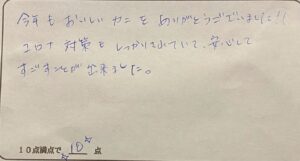 今年もおいしいカニをありがとうございました!!
コロナ対策もしっかりされていて、安心して
すごすことが出来ました。
10点満点で 10 点